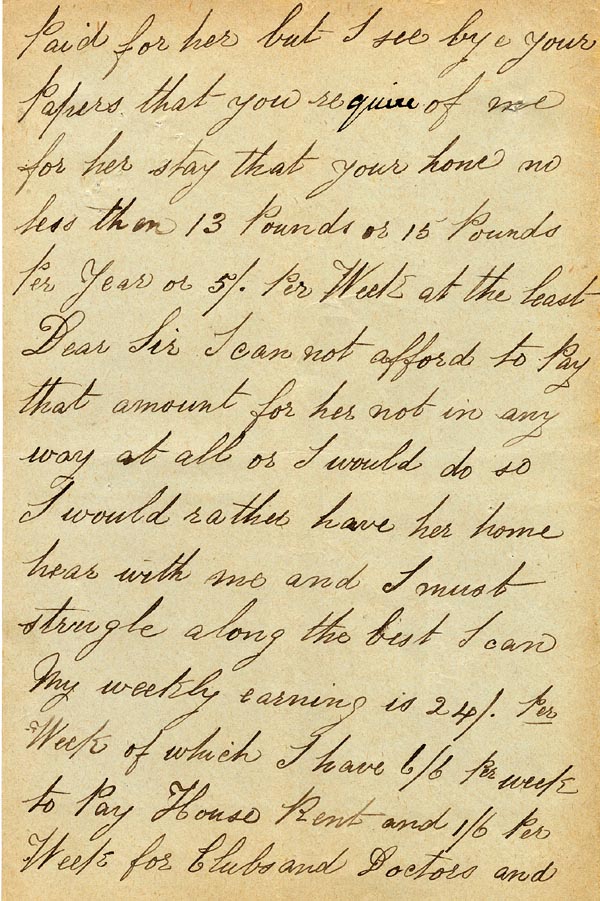 Paid for her but I see bye your
Papers that you require of me
for her stay that your home no
less then 13 Pounds or 15 Pounds
Per Year or 5/. Per Week at the least
Dear Sir I can not afford to Pay
that amount for her not in any
way at all or I would do so
I would rather have her home
hear with me and I must
strugle along the best I can
My weekly earning is 24/. Per
Week of which I have 6/6 Per week
to Pay House Rent and 1/6 Per
Week for Clubs and Doctors and